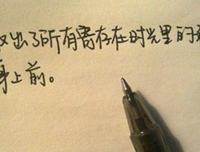 出了所有寄存在时光里的
上前。